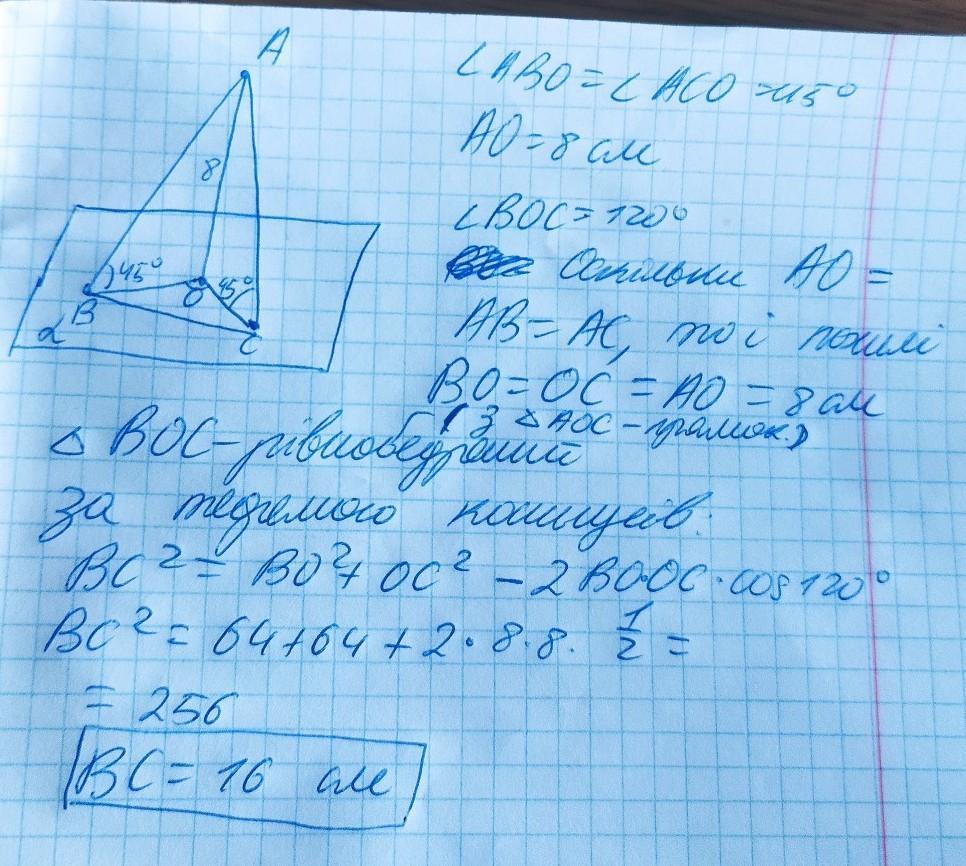 A
8
45°
45°
B
O
C
α
∠ABO = ∠ACO = 45°
AO = 8 см
∠BOC = 120°
Оскільки AO =
AB = AC, то і похилі
BO = OC = AO = 8 см
(з △ AOC - прямок.)
△ BOC - рівнобедрений
За теоремою косинусів.
BC² = BO² + OC² - 2 BO·OC · cos 120°
BC² = 64 + 64 + 2 · 8 · 8 · 1/2 =
= 256
BC = 16 см